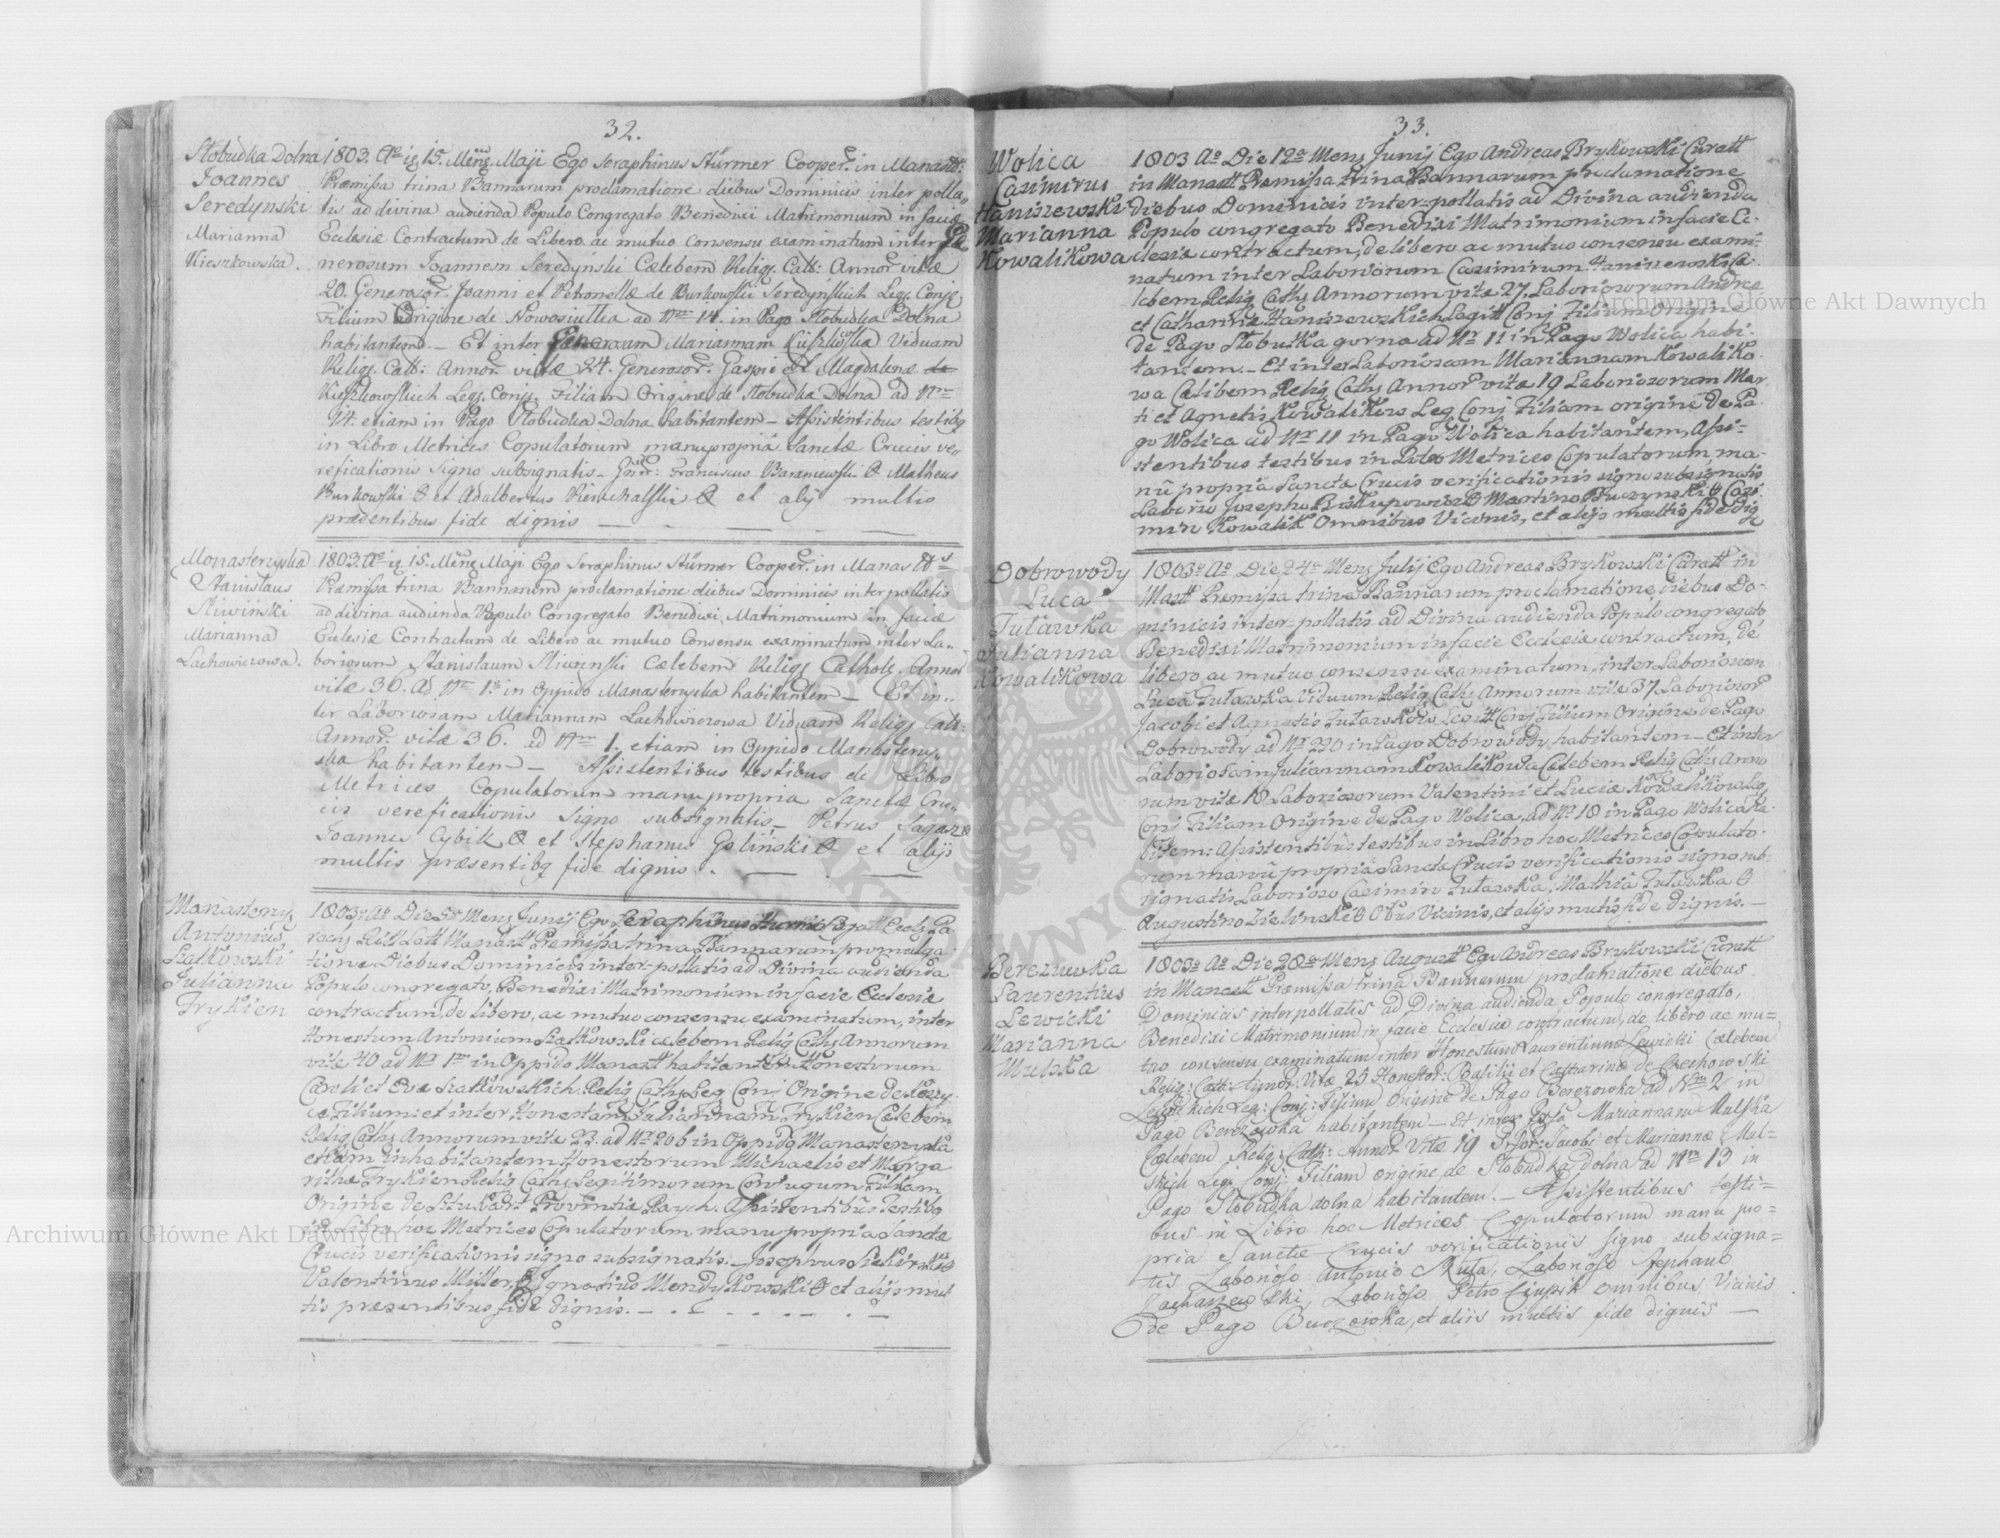 32.
Slobudka Dolna
Joannes
Seredynski
Marianna
Kieszkowska.
1803. Ao ig 15. Mens Maji Ego Seraphinus Stürmer Cooper. in Manast:
Præmissa trina Bannarum proclamatione diebus Dominicis inter polla
tis ad divina audienda Populo Congregato Benedixi Matrimonium in faciæ
Eclesiæ Contractum de Libero ac mutuo consensu examinatum inter Ge
nerosum Joannem Seredyński Cælebem Relig. Catt: Annor vitæ
20. Generosor. Joanni et Petronellæ de Burkowski Seredynskich Leg. Conje
Filium Origine de Nowosiulka ad Nrm 14. in Pago Slobudka Dolna
habitantem. — Et inter Generosam Mariannam Viduam
Relig. Catt: Annor. vitæ 24. Generosor. Gaspri et Magdalenæ de
Kieszkowskich Leg. Conj. Filiam Origine de Slobudka Dolna ad Nrm
14. etiam in Pago Slobudka Dolna habitantem — Assistentibus testibq
in Libro Metrices Copulatorum manu propriâ Sanctæ Crucis ve
reficationis Signo subsignatis — Gner: Franciscus Baraniewski & Matheus
Burkowski & et Adalbertus & et alij multis
præsentibus fide dignis —
Monasterzyska
Stanislaus
Sliwinski
Marianna
Lachowiczowa.
1803. Ao ig 15. Mens Maji Ego Seraphinus Stürmer Cooper. in Manas
Præmissa trina Bannarum proclamatione diebus Dominicis inter pollatis
ad divina audienda Populo Congregato Benedixi Matrimonium in faciæ
Eclesiæ Contractum de Libero ac mutuo Consensu examinatum inter La-
boriosum Stanislaum Sliwinski Cælebem Religs Cathol. Annor
vitæ 36. ad Nrm 1. in Oppido Manasterzyska habitantem — Et in-
ter Laboriosam Mariannam Lachowiczowa Viduam Religs Catt.
Annor. vitæ 36. ad Nrm 1. etiam in Oppido Manasterzy-
ska habitantem — Assistentibus testibus de Libro
Metrices Copulatorum manu propria Sanctæ Cru-
cis vereficationis Signo subsignatis — Petrus &
Joannes Cybik & et Stephanus Goliński & et alijs
multis præsentibq fide dignis. —
Manasterz.
Antonius
Szatkowski
Julianna
Frykien
1803. Ao Die Mens Junij Ego Seraphinus Eccls Pa
rochs Ritt Latt Manastt Premissa trina Bannarum promulga
tione Diebus Dominicis inter-pollatis ad Divina audienda
Populo congregato, Benedixi Matrimonium in facie Eclesie
contractum, de libero, ac mutuo consensu examinatum, inter
Honestum Antonium Szatkowski celebem Relig Caths Annorum
vite 40 ad Nr 1m in Oppido Manastt habitantem Honestorum
Caroli et Eva Szatkowskich Relig Caths Leg Conj Origine de
Filium: et inter Honestam Juliannam Frykien Celebem
Relig Caths Annorum vite 23. ad Nr 206 in Oppido Manasterzyska
etiam inhabitantem Honestorum Michaelis et Marga
rithe Frykien Relig Caths Legitimorum Conjugum Filiam
Origine de Provintie Assistentibus Testibq
in Libro hoc Metrices Copulatorum manu propria Sancte
Crucis verificationis signo subsignatis. — Josephus
Valentinus Miller & Ignatius Mendykowski & et alijs mul
tis præsentibus fide dignis. —
33.
Wolica
Casimirus
Haniszewski
Marianna
Kowalikowa
1803 Ao Die 12a Mens Junij Ego Andreas Brykowski Curatt
in Manastt Premissa trina Bannarum proclamatione
diebus Dominicis inter-pollatis ad Divina audienda
Populo congregato Benedixi Matrimonium in facie Ec-
clesie contractum, de libero ac mutuo consensu exami-
natum inter Laboriosum Casimirum Haniszewski Ce
lebem Relig Caths Annorum vitæ 27, Laboriosorum Andreæ
et Catharine Haniszewskich Legitt Conj Filium Origine
de Pago Slobutka gorna ad Nr 11 in Pago Wolica habi-
tantem — Et inter Laboriosam Mariannam Kowaliko-
wa Celibem Relig Caths Annor vitæ 19 Laboriosorum Mar-
ti et Agnetis Kowalikow Leg Conj Filiam origine de Pa-
go Wolica ad Nr 11 in Pago Wolica habitantem, Assi-
stentibus testibus in Libro Metrices Copulatorum ma-
nu propriâ Sancte Crucis verificationis signo subsignatis
Laborio Josepho Biskupowicz & Martino Buczynski & Casi
mir Kowalik Omnibus Vicinis, et alijs multis fide dig
Dobrowody
Luca
Tulawka
Julianna
Kowalikowa
1803o Ao Die 24a Mens Julij Ego Andreas Brykowski Curatt in
Mastt Premissa trina Bannarum proclamatione diebus Do-
minicis inter-pollatis ad Divina audienda Populo congregato
Benedixi Matrimonium in facie Ecclesie contractum, de
libero, ac mutuo consensu examinatum, inter Laboriosum
Luca Tulawka Viduum Relig Caths Annorum vite 37 Laboriosor
Jacobi et Agnetis Tulawskow Legitt Conj Filium Origine de Pago
Dobrowody ad Nr 220 in Pago Dobrowody habitantem — Et inter
Laboriosam Juliannam Kowalikowa Celebem Relig Caths Anno
rum vitæ 18 Laboriosorum Valentini et Luciæ Kowalikow Leg
Conj Filiam Origine de Pago Wolica, ad Nr 18 in Pago Wolica ha-
bitem: Assistentibus testibus in Libro hoc Metrices Copulato-
rum manu propriâ Sancte Crucis verificationis signo sub-
signatis Laborioso Casimir Tulawka, Mathia Tulawka &
Augustino Zielinski & Obus Vicinis, et alijs multis fide dignis. —
Berezuwka
Laurentius
Lewicki
Marianna
Mulska
1803o Ao Die 28a Mens Augustt Ego Andreas Brykowski Curatt
in Manastt Præmissa trina Bannarum proclamatione diebus
Dominicis interpollatis ad Divina audienda Populo congregato,
Benedixi Matrimonium in facie Ecclesiæ contractum, de libero ac mu-
tuo consensu examinatum inter Honestum Laurentium Lewicki Cælebem
Relig: Cath: Annor: Vitæ 25 Honestor: Basilii et Catharinæ de Czechowski
Lewickich Leg: Conj: Filium Origine de Pago Berezowka ad Nrm 2 in
Pago Berezowka habitantem — Et inter Mariannam Mulska
Cælebem Relig: Cath: Annor Vitæ 19 Jacobi et Mariannæ Mul=
skich Leg: Conj: Filiam origine de Slobudka dolna ad Nrm 13 in
Pago Slobudka dolna habitantem. — Assistentibus testi=
bus in Libro hoc Metrices Copulatorum manu pro=
pria Sanctæ Crucis verificationis signo subsigna=
tis Laborioso Antonio Muta, Laborioso Stephano
Laborioso Petro Omnibus Vicinis
de Pago et aliis multis fide dignis —
Archiwum Główne Akt Dawnych
Archiwum Główne Akt Dawnych